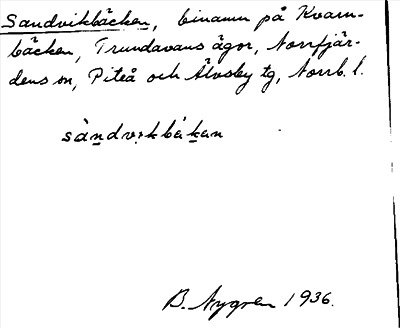 Sandvikbäcken, binamn på Kvarn-
bäcken, Trundavans ägor, Norrfjär-
dens sn, Piteå och Älvsby tg, Norrb. l.
sàndvikbäkan
B. Nygren 1936.